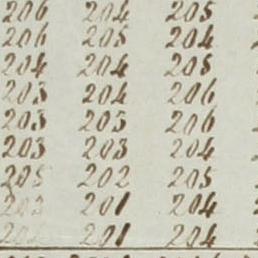 206 204 205
206 205 204
204 204 205
203 204 206
203 203 206
203 203 204
205 202 205
203 201 204
201 204